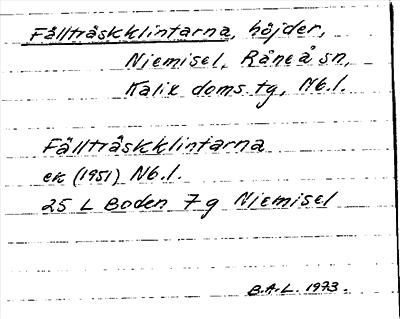 Fällträskklintarna, höjder,
Niemisel, Råneå sn,
Kalix doms. tg, Nb. l.
Fällträskklintarna
ek (1951) Nb. l.
25 L Boden 7g Niemisel
B.A.L. 1973.